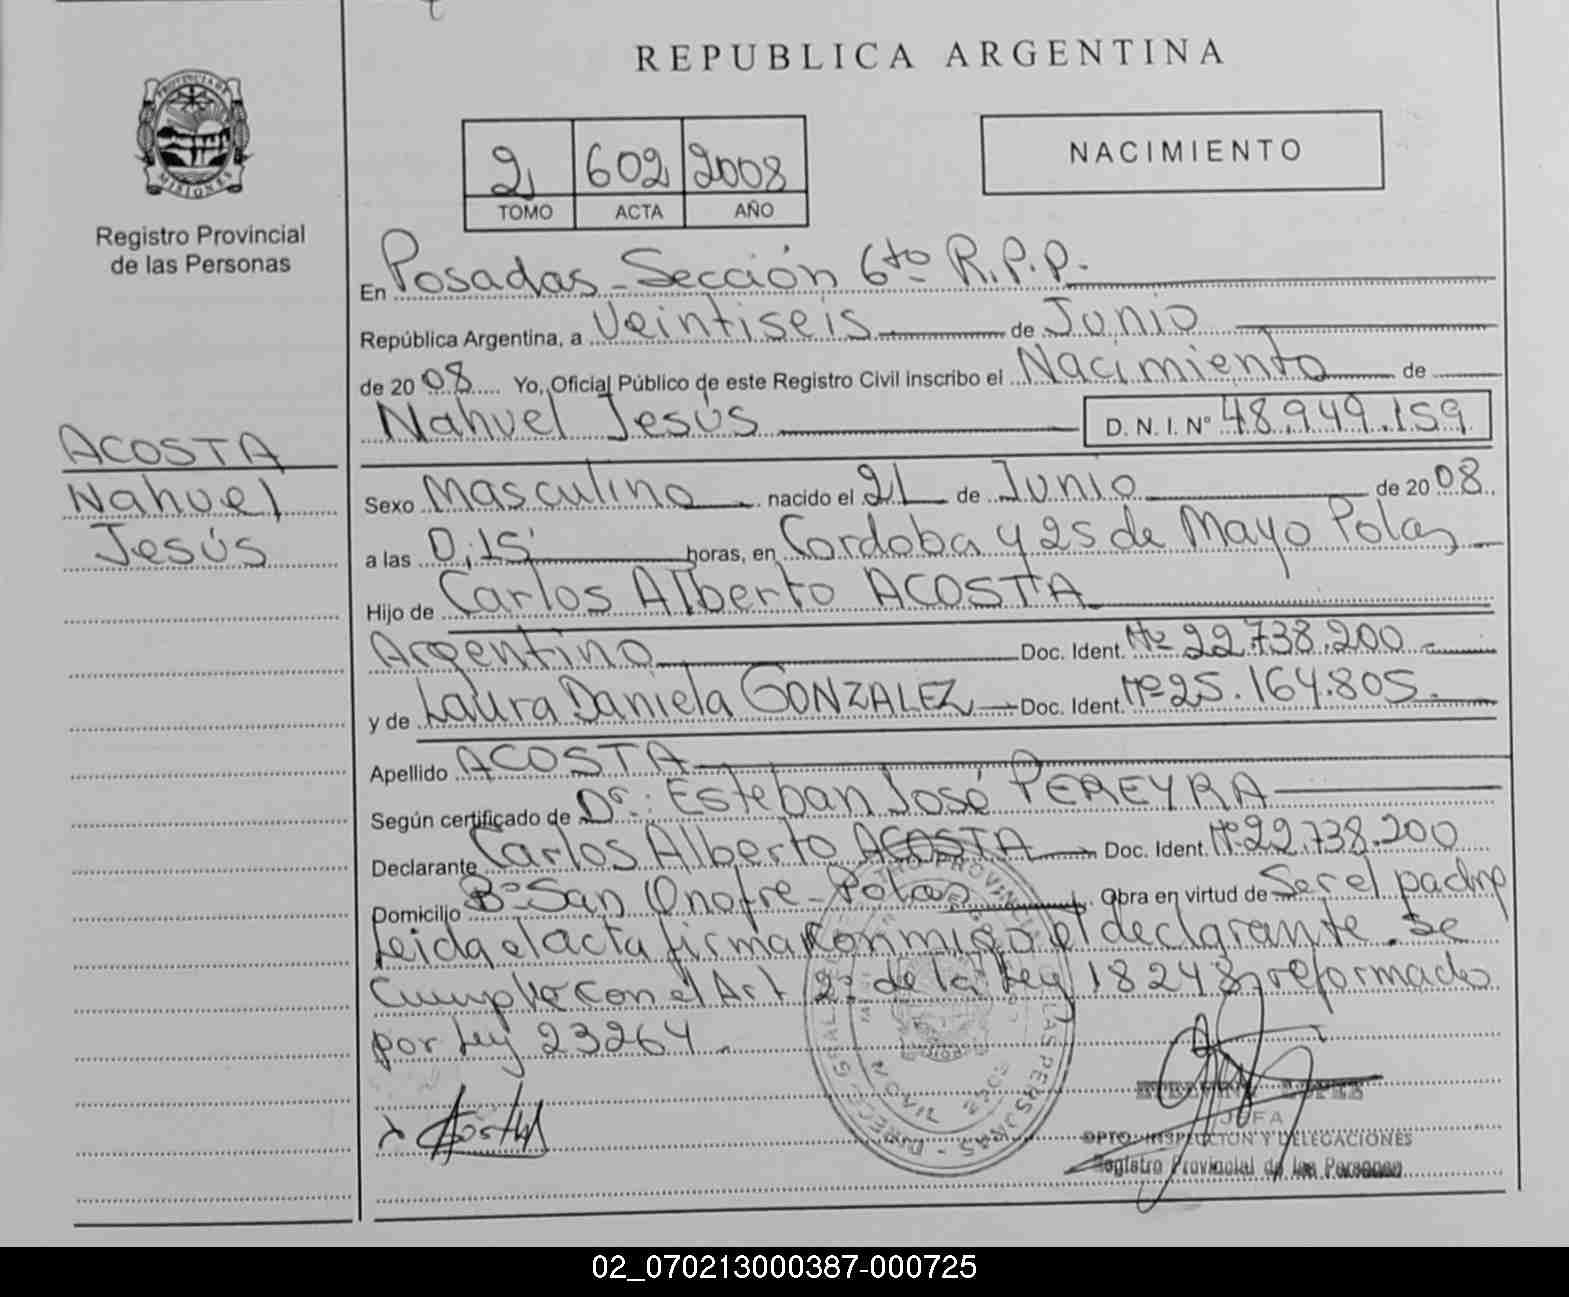 REPUBLICA ARGENTINA
PROVINCIA DE
MISIONES
Registro Provincial
de las Personas
2 602 2008
TOMO ACTA AÑO
NACIMIENTO
En Posadas - Sección 6to R.P.P.
República Argentina, a Veintiseis de Junio
de 2008 Yo, Oficial Público de este Registro Civil Inscribo el Nacimiento de
Nahuel Jesús D. N. I. Nº 48.949.159
ACOSTA
Nahuel
Jesús
Sexo Masculino nacido el 21 de Junio de 2008
a las 0,15' horas, en Cordoba y 25 de Mayo Pdas
Hijo de Carlos Alberto ACOSTA
Argentino Doc. Ident. Nº 22.738.200
y de Laura Daniela GONZALEZ Doc. Ident. Nº 25.164.805.
Apellido ACOSTA
Según certificado de Dr: Esteban José PEREYRA
Declarante Carlos Alberto ACOSTA Doc. Ident. Nº 22.738.200
Domicilio Bº San Onofre - Pdas Obra en virtud de Ser el padre
Leida el acta firma conmigo el declarante. Se
Cumple con el Art 2º de la Ley 18248, reformado
por Ley 23264.
JEFA
DPTO. INSPECCION Y DELEGACIONES
Registro Provincial de las Personas
02_070213000387-000725